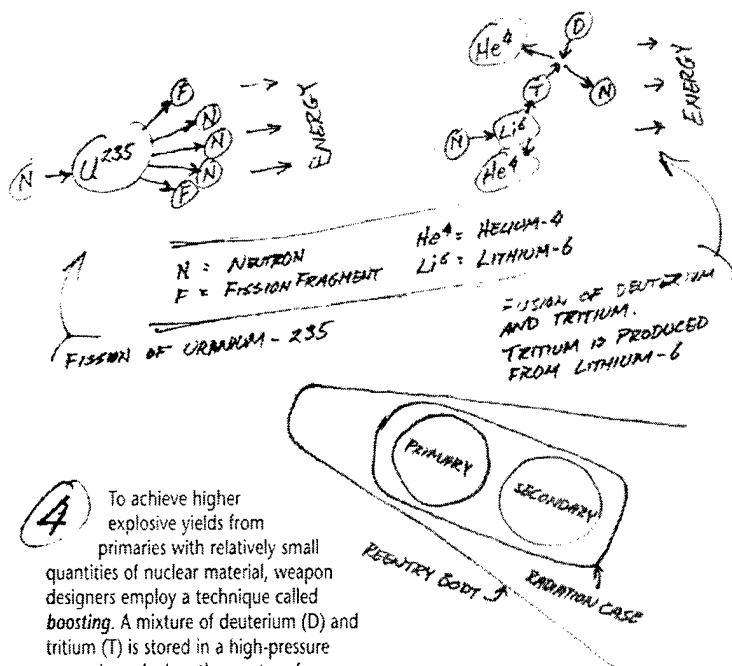 F
N
N
N
F
N
U²³⁵
ENERGY
He⁴
D
T
N
N
Li⁶
He⁴
ENERGY
N = NEUTRON
F = FISSION FRAGMENT
He⁴ = HELIUM-4
Li⁶ = LITHIUM-6
FISSION OF URANIUM-235
FUSION OF DEUTERIUM
AND TRITIUM.
TRITIUM IS PRODUCED
FROM LITHIUM-6
PRIMARY
SECONDARY
REENTRY BODY
RADIATION CASE
4
To achieve higher
explosive yields from
primaries with relatively small
quantities of nuclear material, weapon
designers employ a technique called
boosting. A mixture of deuterium (D) and
tritium (T) is stored in a high-pressure